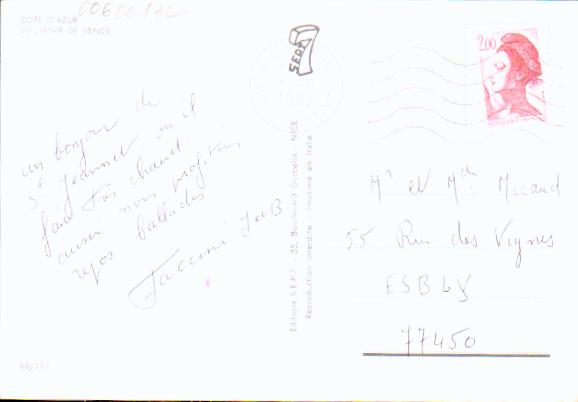 00600132
COTE D'AZUR
SOUVENIR DE VENCE
SEPT
1983
2,00
un bonjour de
St Jeannet ou il
fait très chaud.
aussi nous profitons
repos ballades
Editions S.E.P.T. - 35, Boulevard Gorbella - NICE
Reproduction interdite - Imprimé en Italie
Mr et Md: Micaud
55 Rue des Vignes
ESBLY
77450